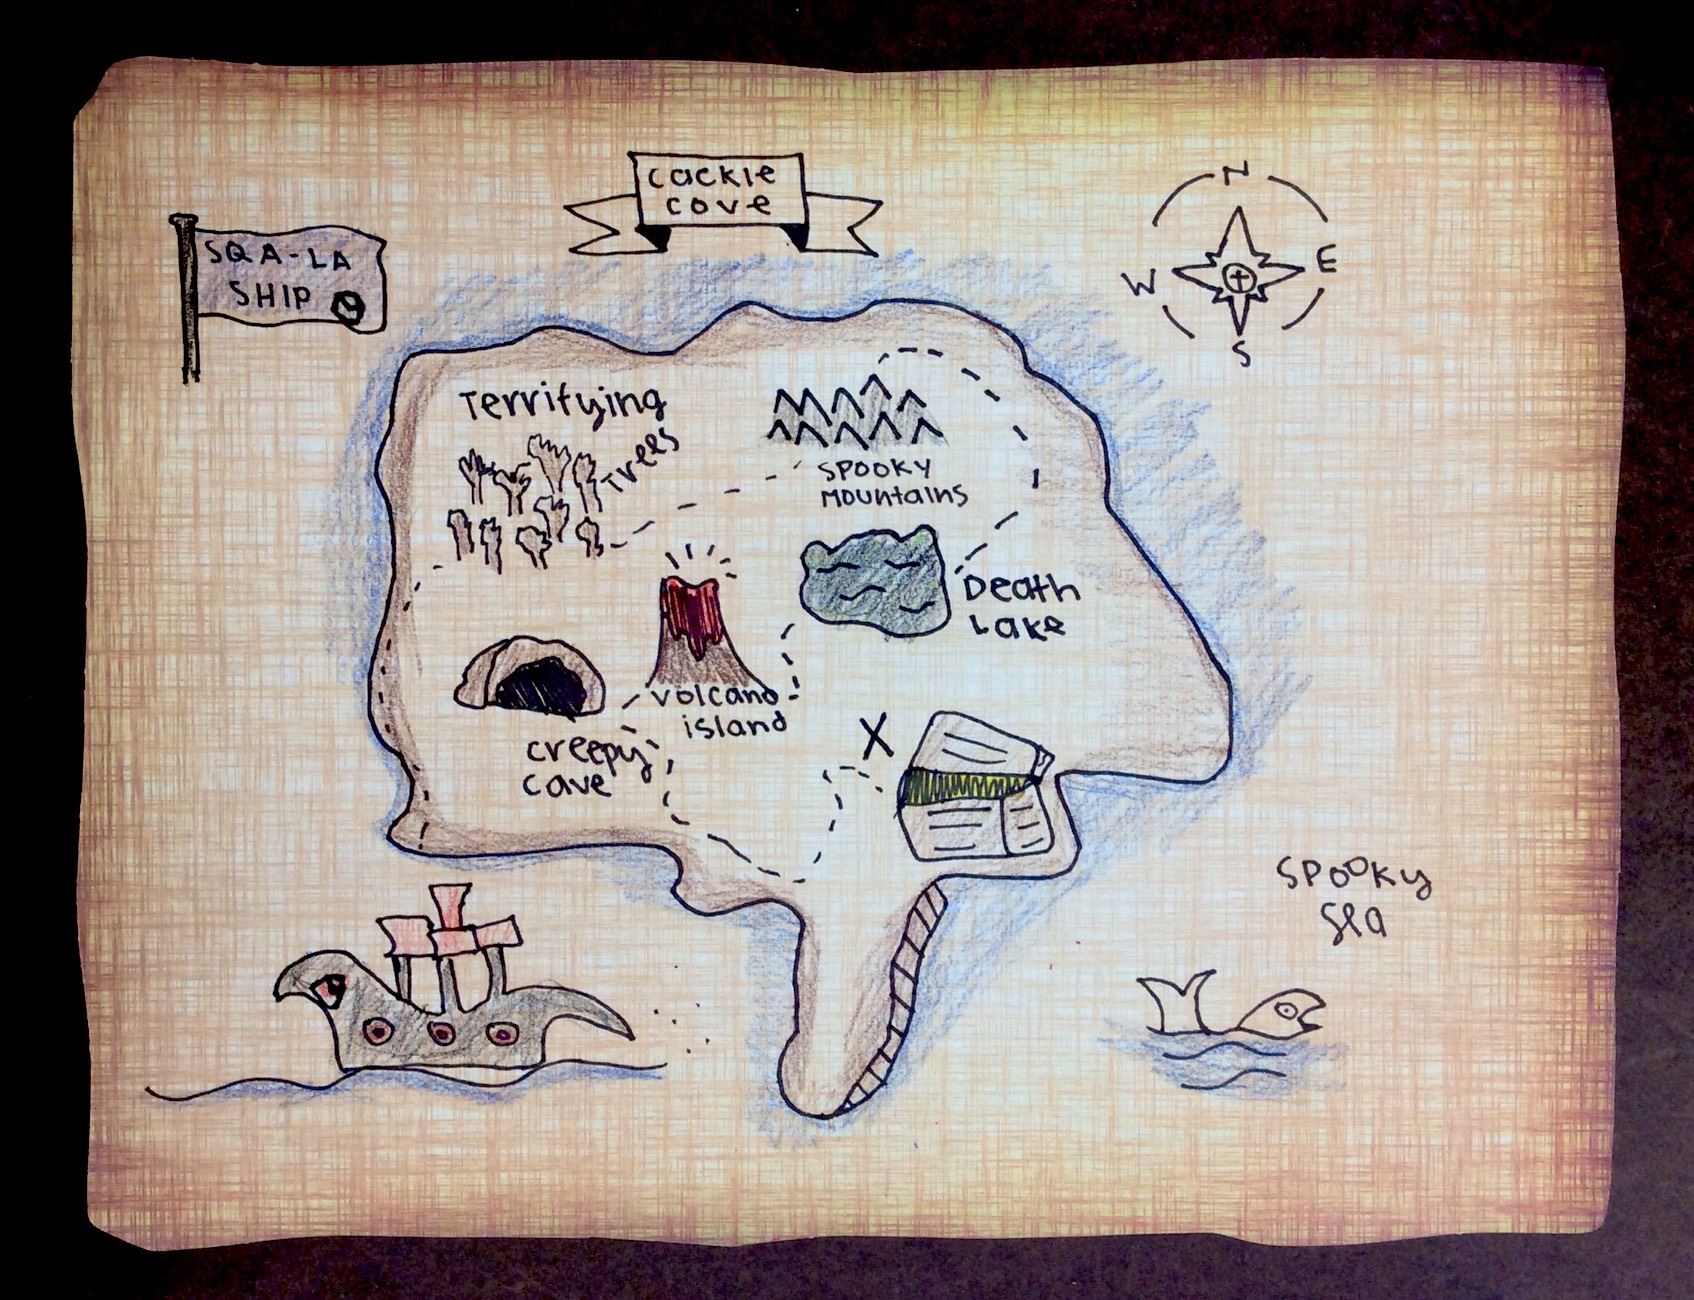 cackle
cove
N
W
E
S
SQA-LA
SHIP
Terrifying
Trees
SPOOKY
Mountains
Death
Lake
volcano
island
creepy
cave
X
SPOOKY
sea